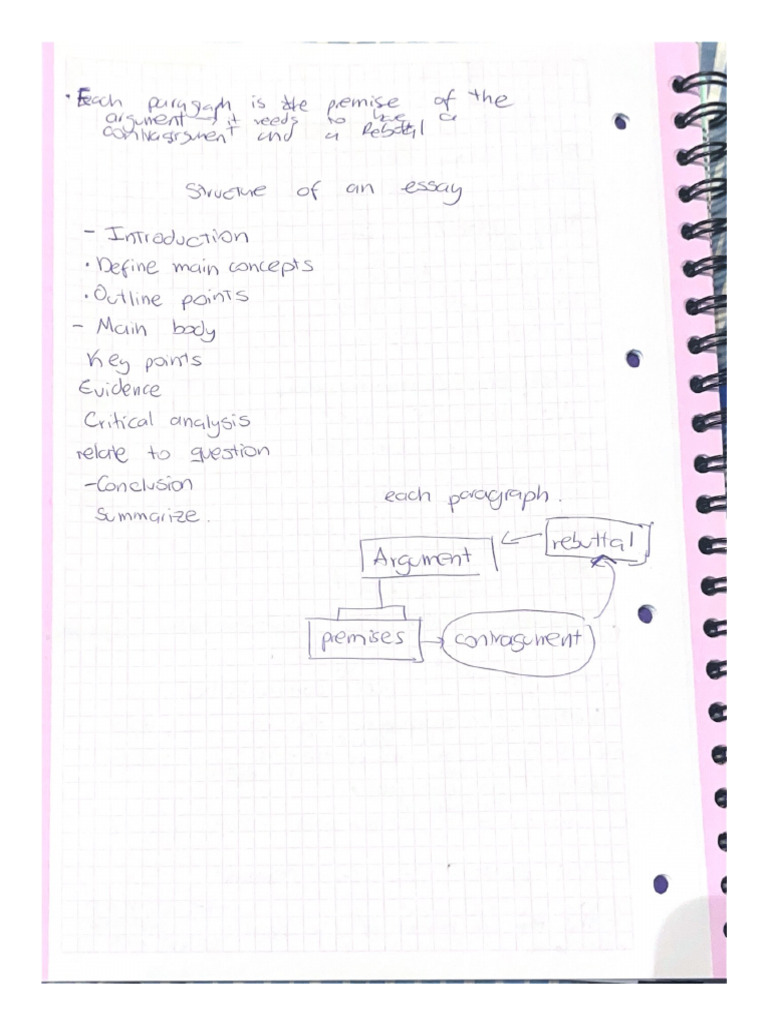 · Each paragraph is the premise of the
argument → it needs to be a
contraargument and a Rebottal
Structure of an essay
- Introduction
· Define main concepts
· Outline points
- Main body
Key points
Evidence
Critical analysis
relate to question
- Conclusion
Summarize.
each paragraph.
rebuttal
Argument
premises
contragument